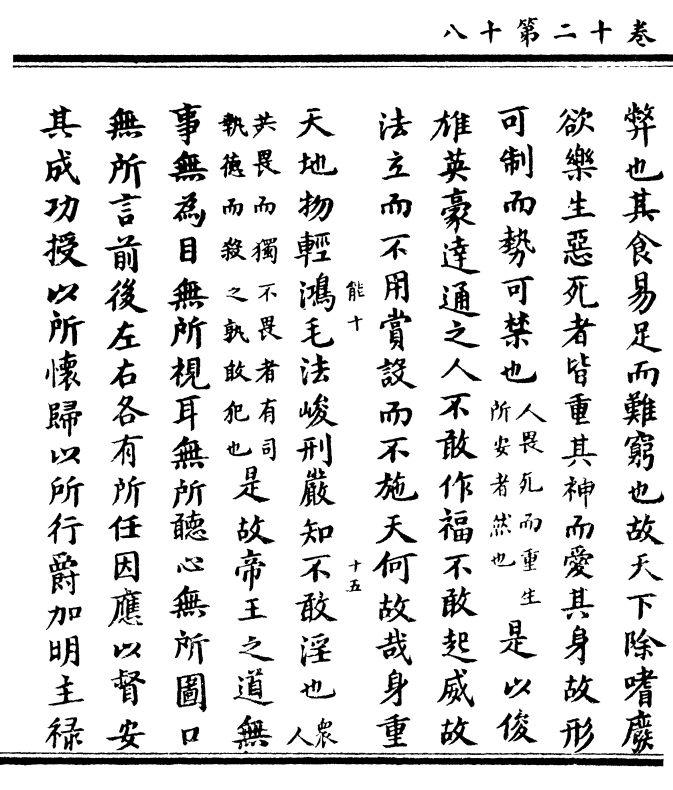 卷十二第十八
弊也其食易足而難窮也故天下除嗜廢
欲樂生惡死者皆重其神而愛其身故形
可制而勢可禁也人畏死而重生所安者然也是以俊
雄英豪達通之人不敢作福不敢起威故
法立而不用賞設而不施天何故哉身重
能十
十五
天地物輕鴻毛法峻刑嚴知不敢淫也衆人
共畏而獨不畏者有司執德而殺之孰敢犯也是故帝王之道無
事無為目無所視耳無所聽心無所圖口
無所言前後左右各有所任因應以督安
其成功授以所懷歸以所行爵加明主祿